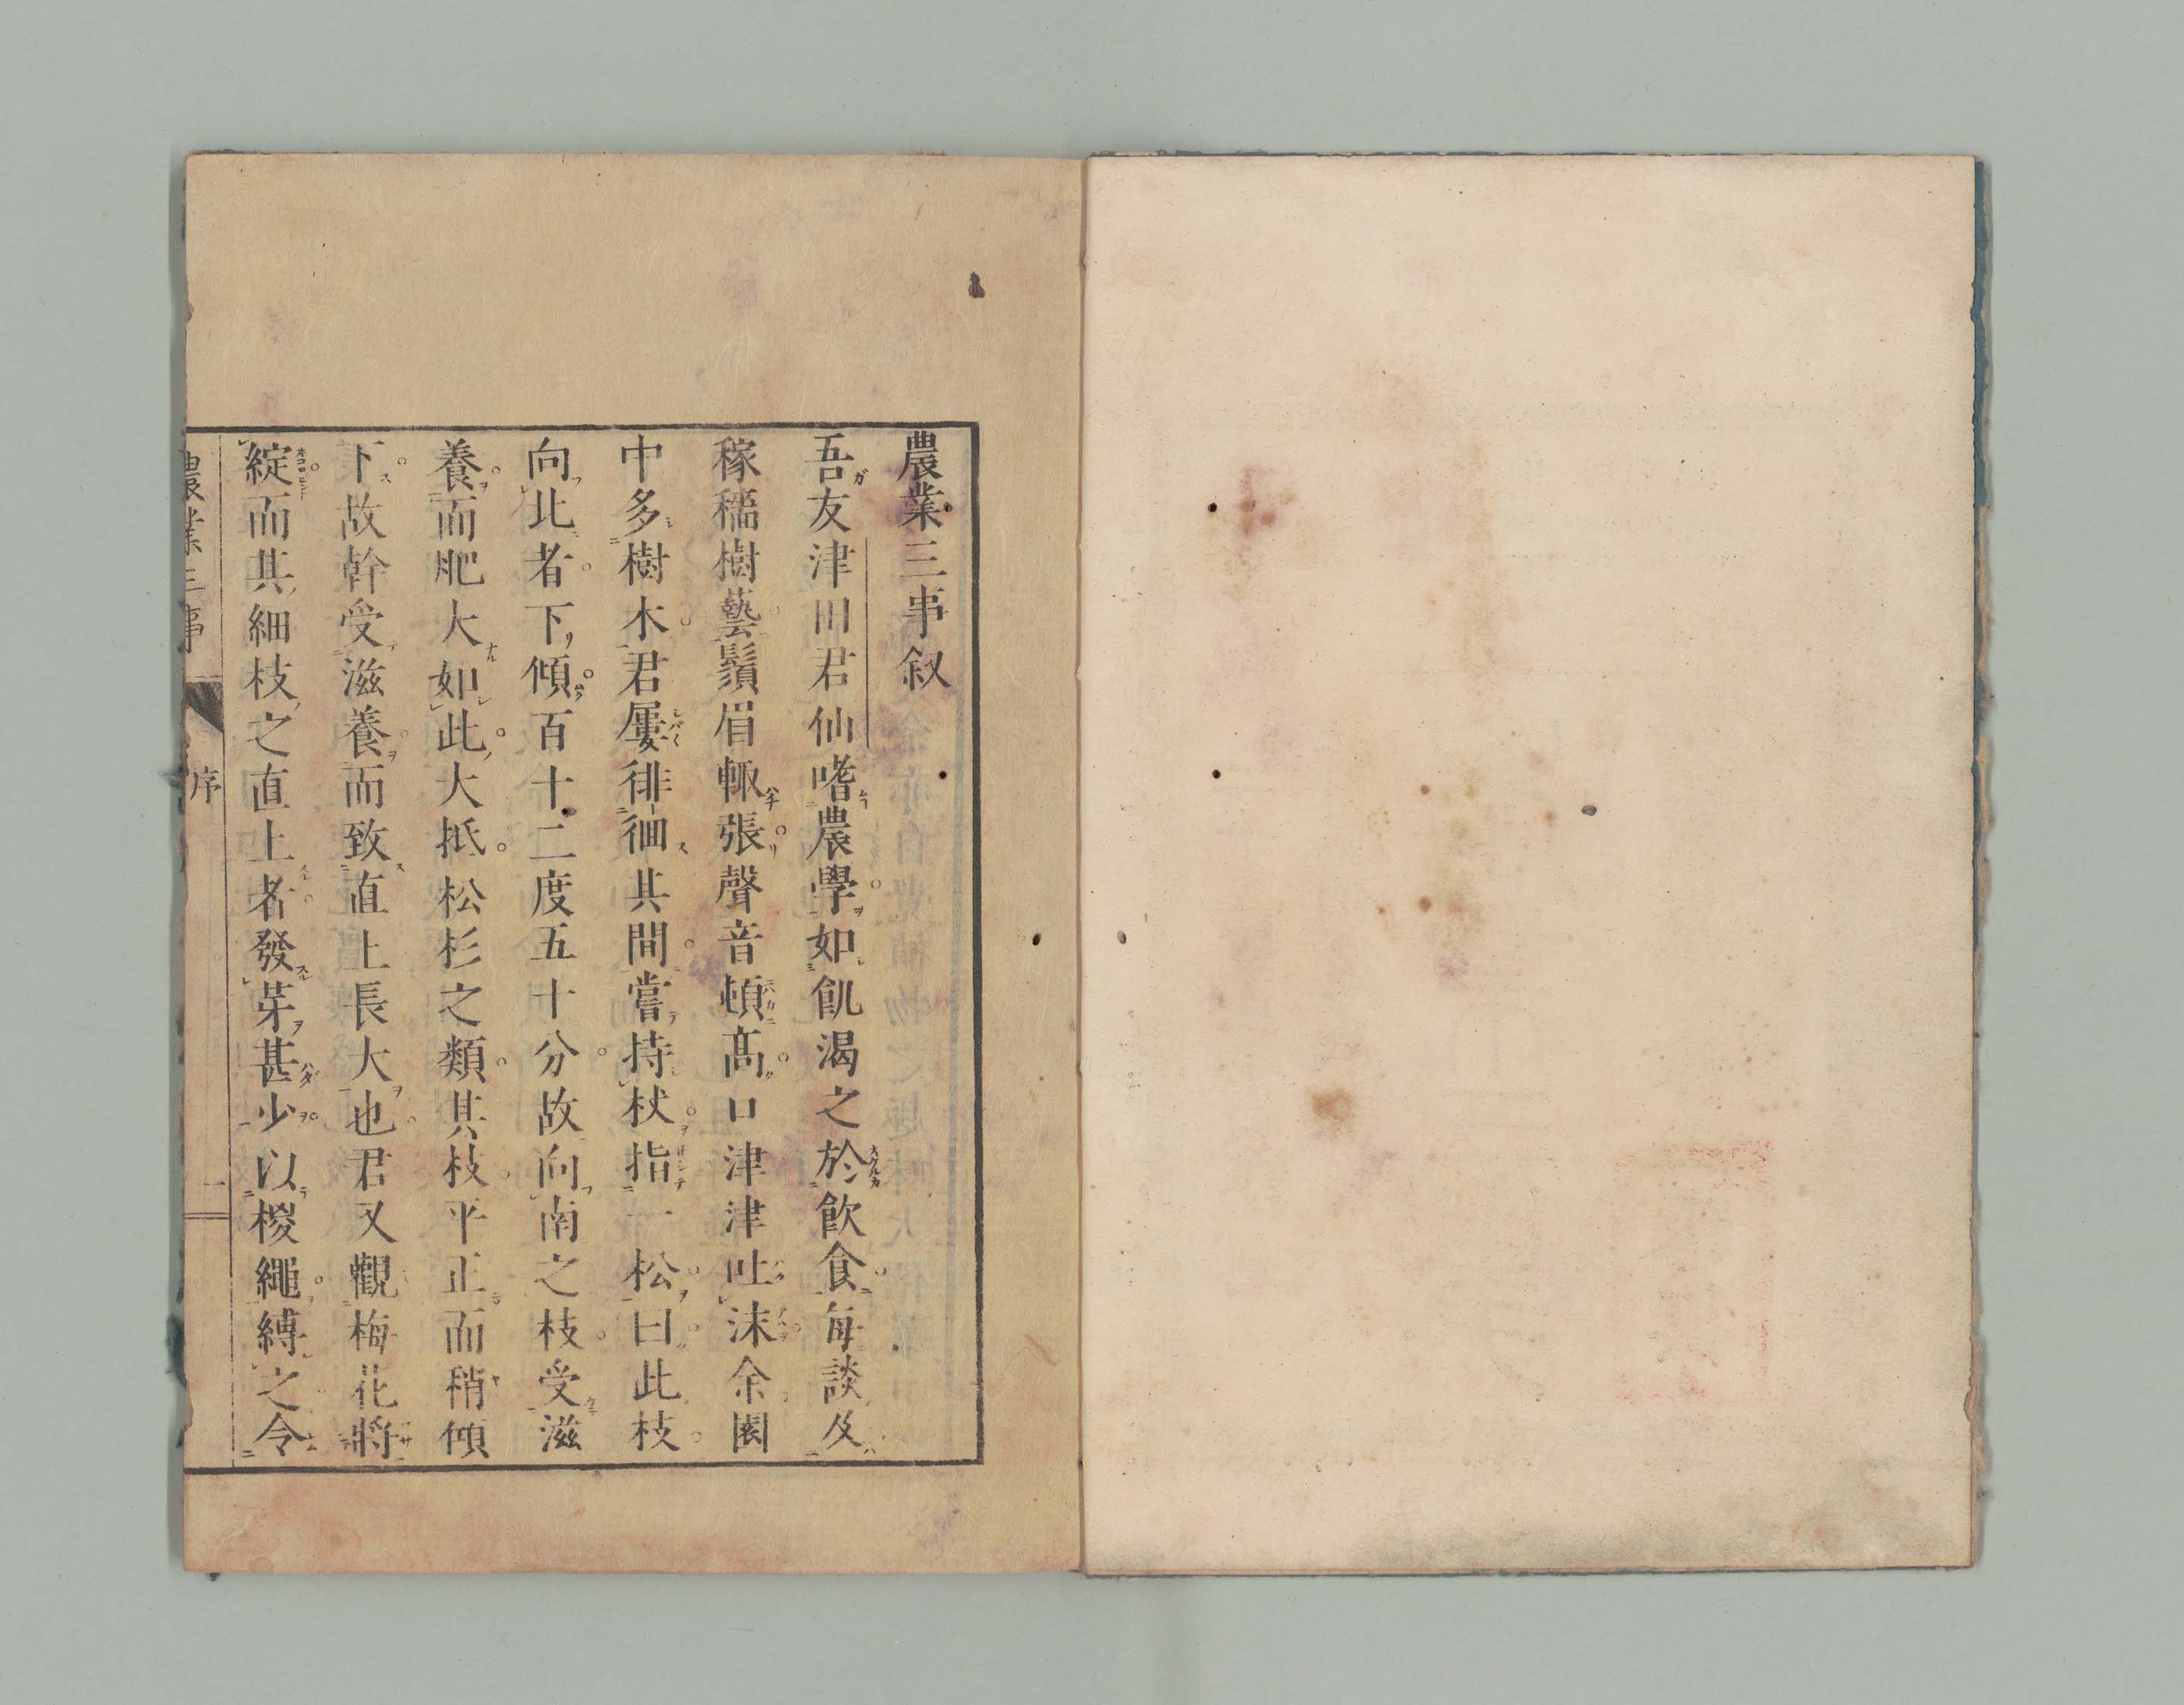 農業三事叙
吾友津田君仙嗜農學如飢渴之於飲食每談及
稼穡樹藝鬚眉輙張聲音頓高口津津吐沫余園
中多樹木君屢徘徊其間嘗持杖指一松曰此枝
向北者下傾百十二度五十分故向南之枝受滋
養而肥大如此大抵松杉之類其枝平正而稍傾
下故幹受滋養而致直上長大也君又觀梅花將
綻而其細枝之直上者發芽甚少以椶繩縛之令
農業三事 序 一